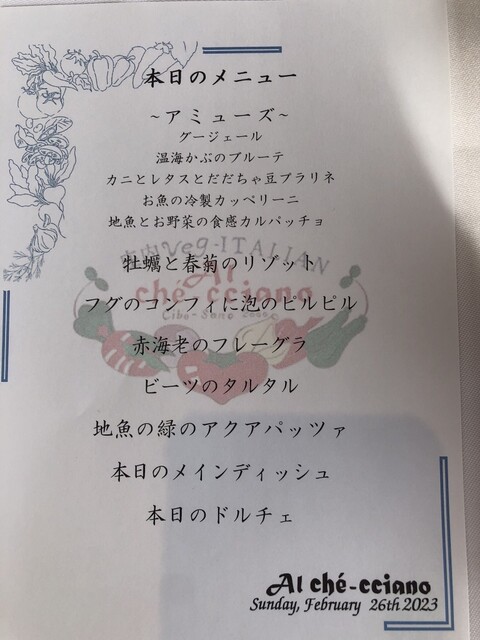 本日のメニュー
~アミューズ~
グージェール
温海かぶのブルーテ
カニとレタスとだだちゃ豆プラリネ
お魚の冷製カッペリーニ
地魚とお野菜の食感カルパッチョ
庄内Veg-ITALIAN
牡蠣と春菊のリゾット
Al
ché-cciano
フグのコンフィに泡のピルピル
赤海老のフレーグラ
ビーツのタルタル
地魚の緑のアクアパッツァ
本日のメインディッシュ
本日のドルチェ
Al ché-cciano
Sunday, February 26th 2023